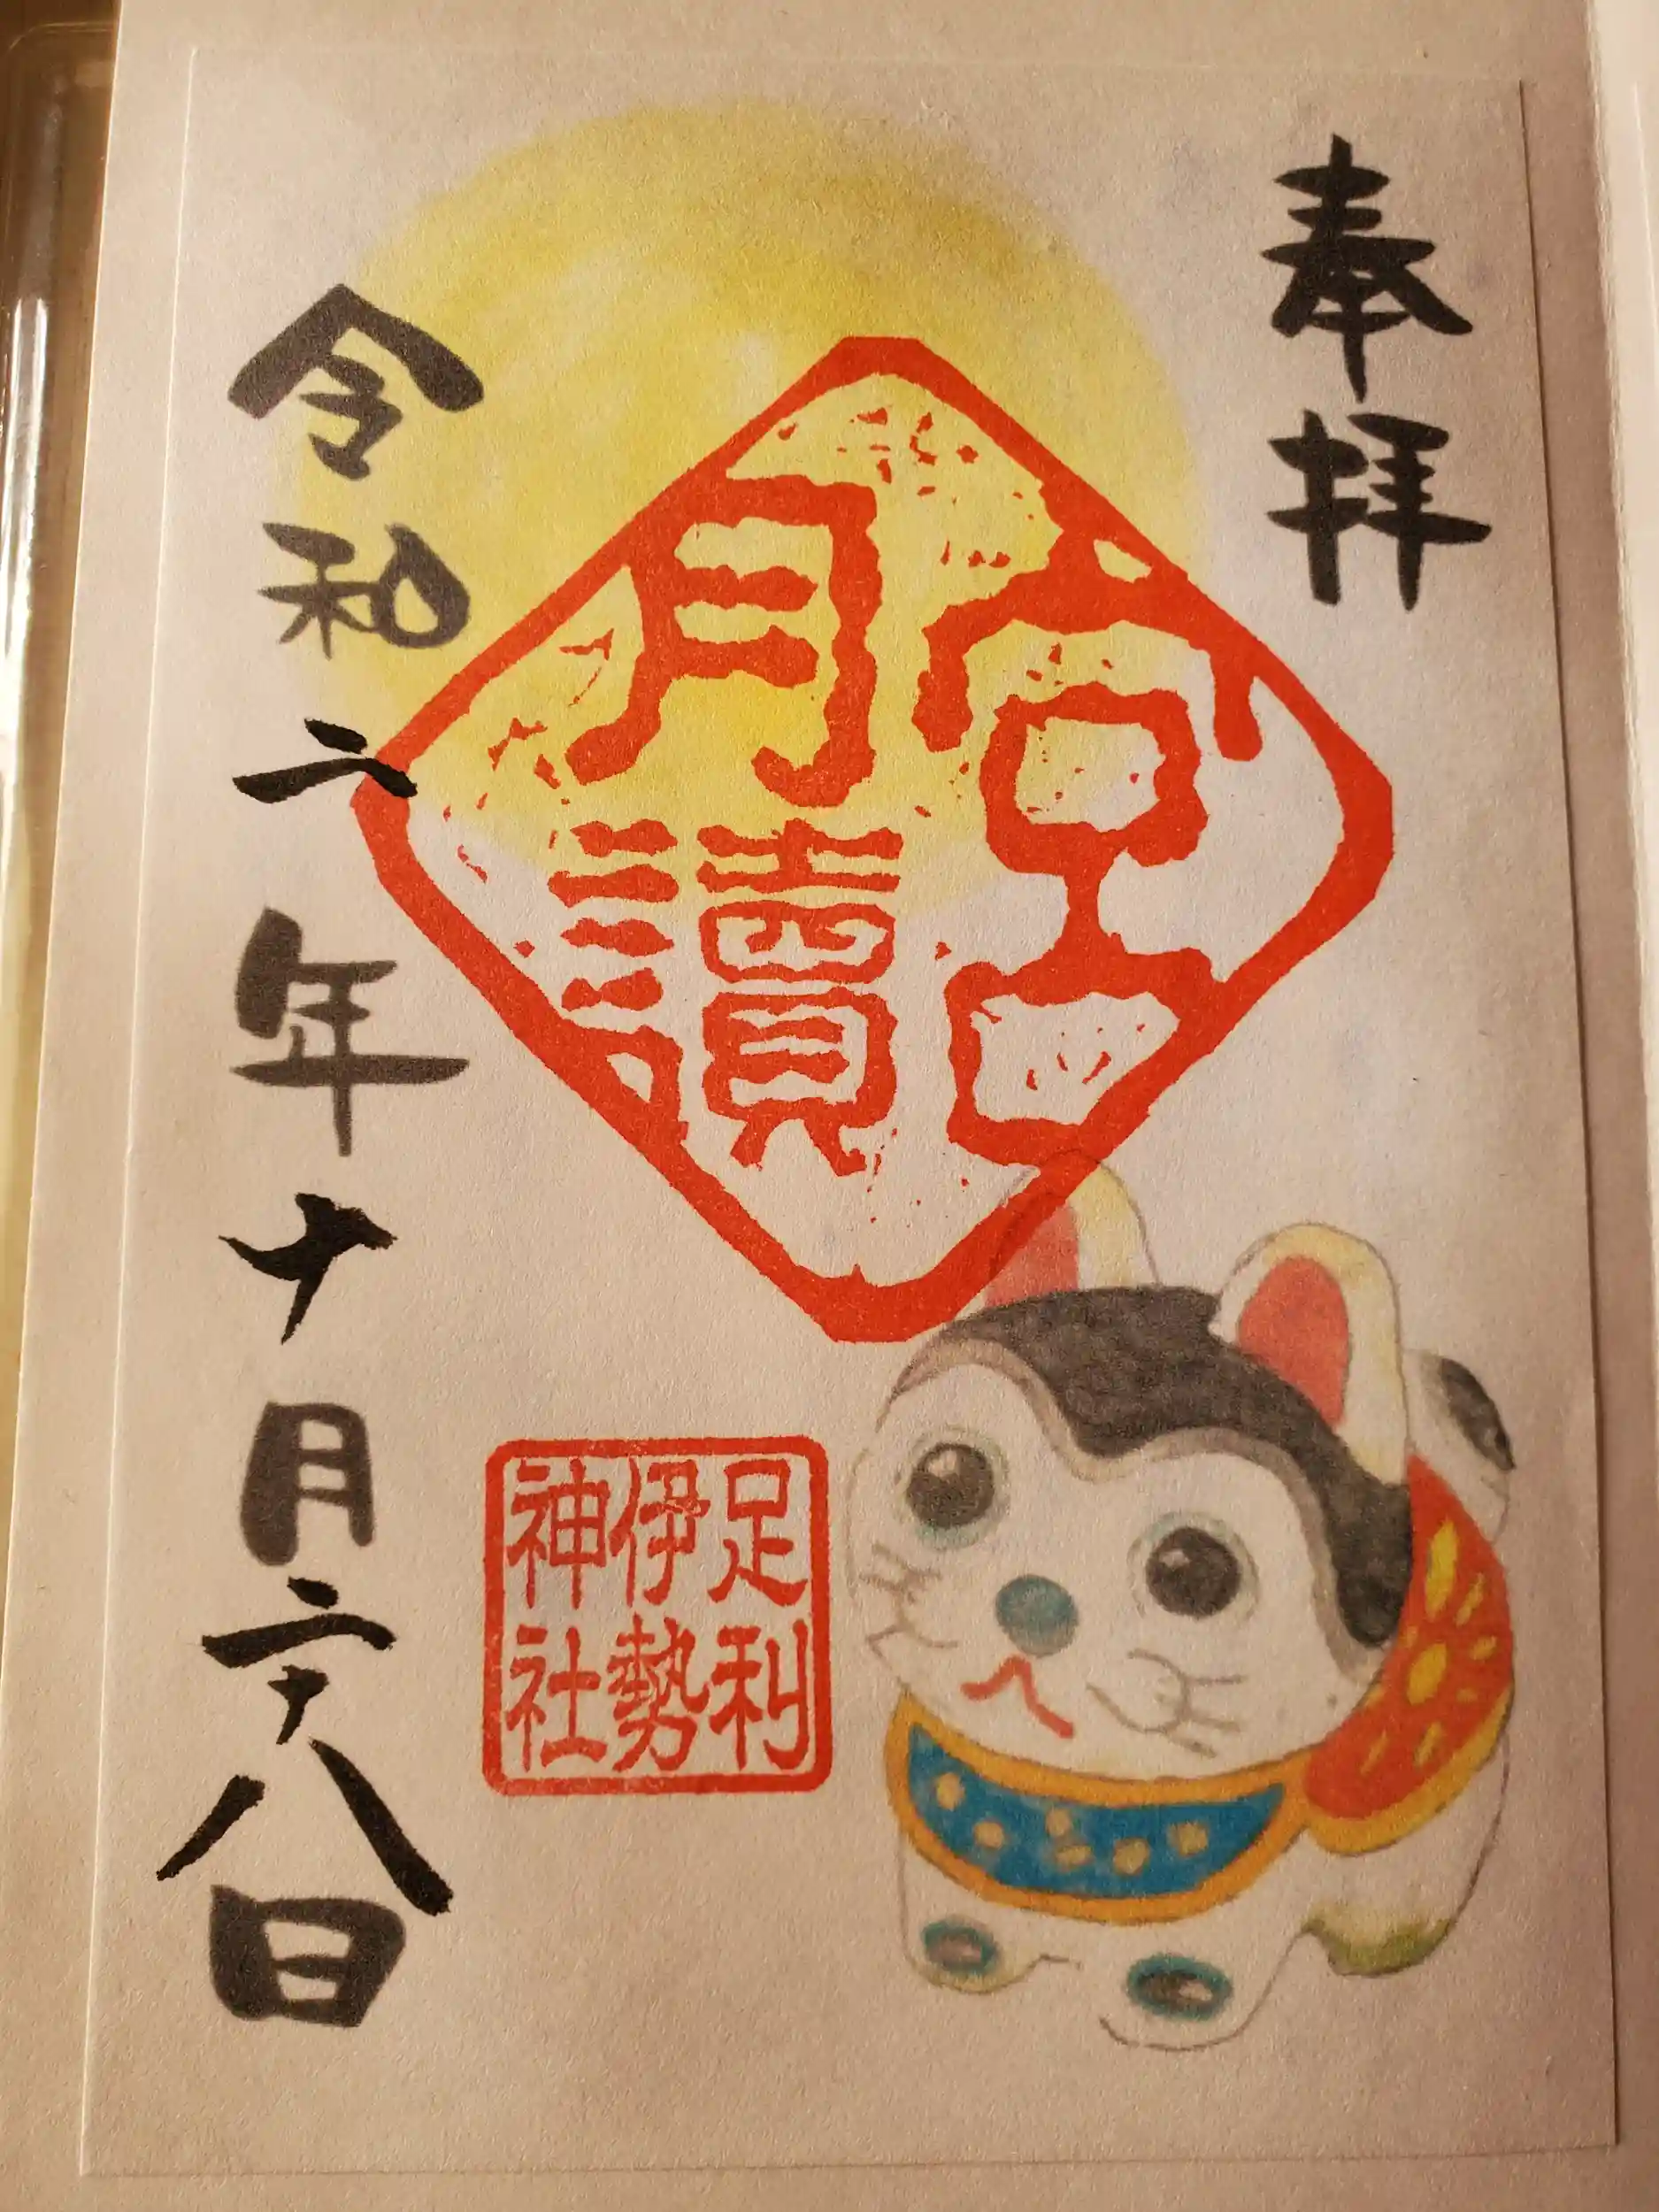 奉拝
月讀宮
足利
伊勢
神社
令和二年十月二十八日